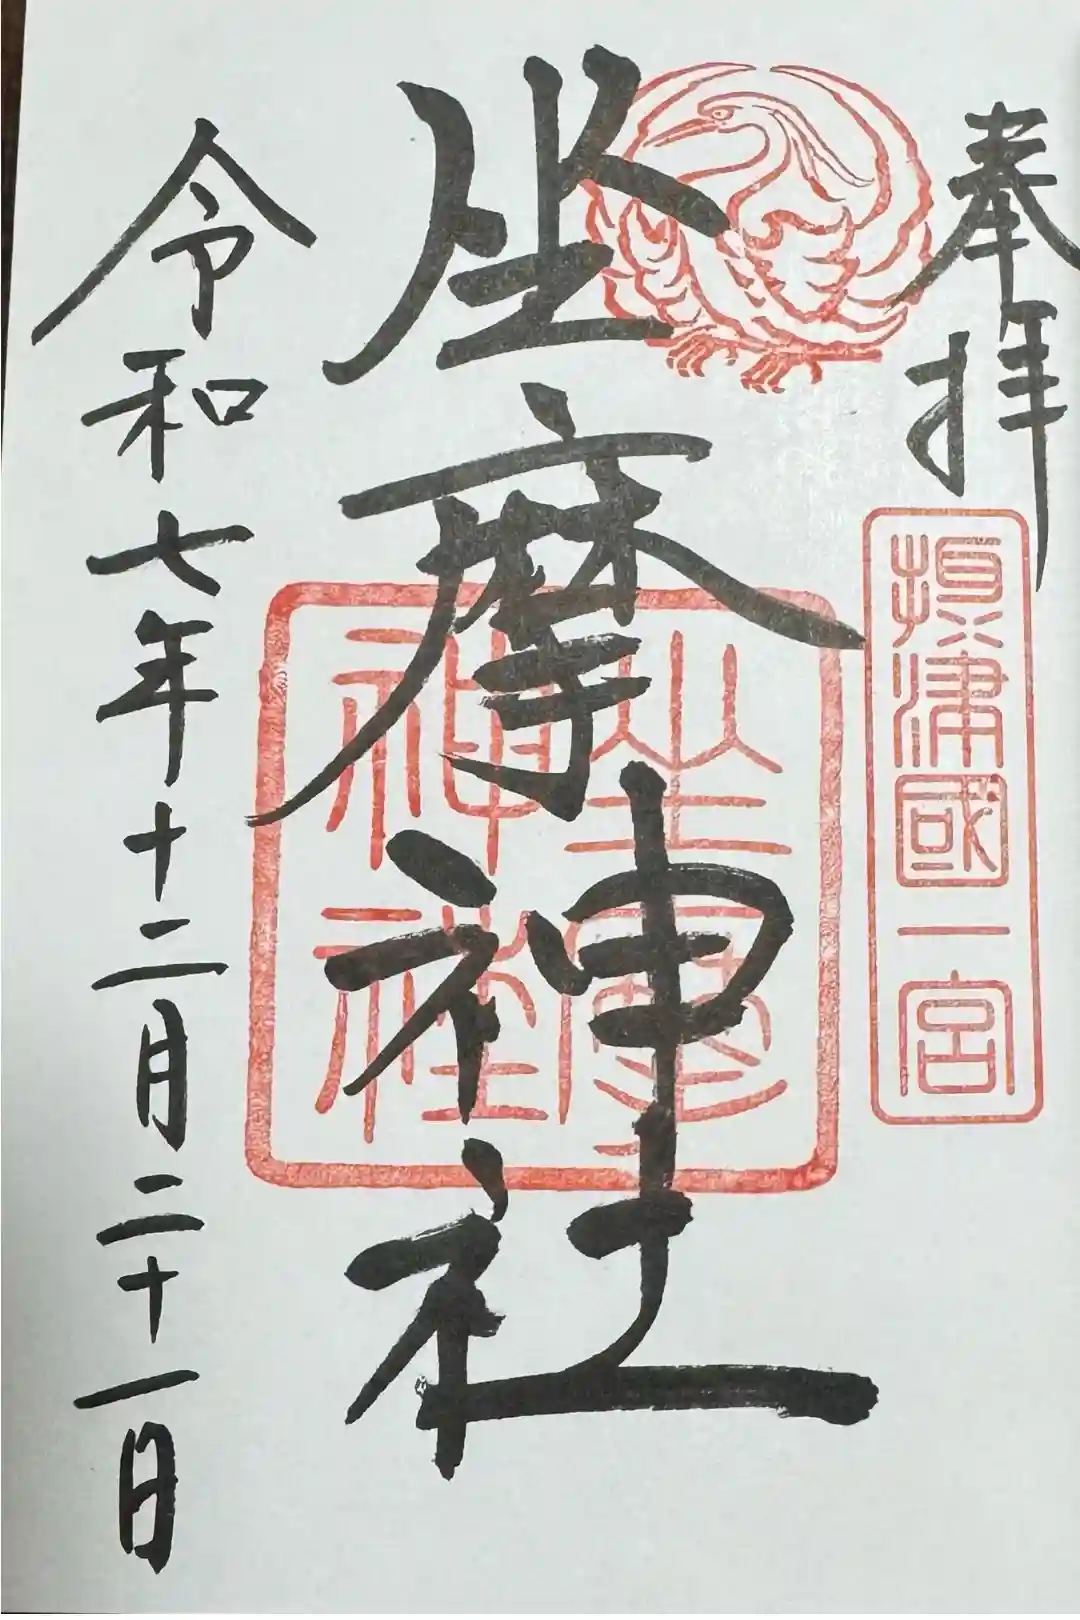 奉拝
攝津國一宮
坐摩神社
坐摩神社
令和七年十二月二十一日